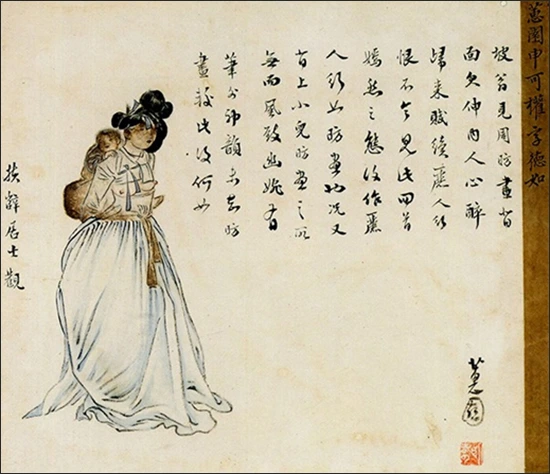 蕙園申可權字德如
坡翁見周昉畫背
面欠伸內人心醉
歸來賦續麗人行
恨不令見此回首
嫣然之態復作麗
人行 昉畫也況又
背上小兒昉畫之所
無而風致幽婉
筆外神韻未知昉
畫較此復何如
扶辭居士觀
蕙園